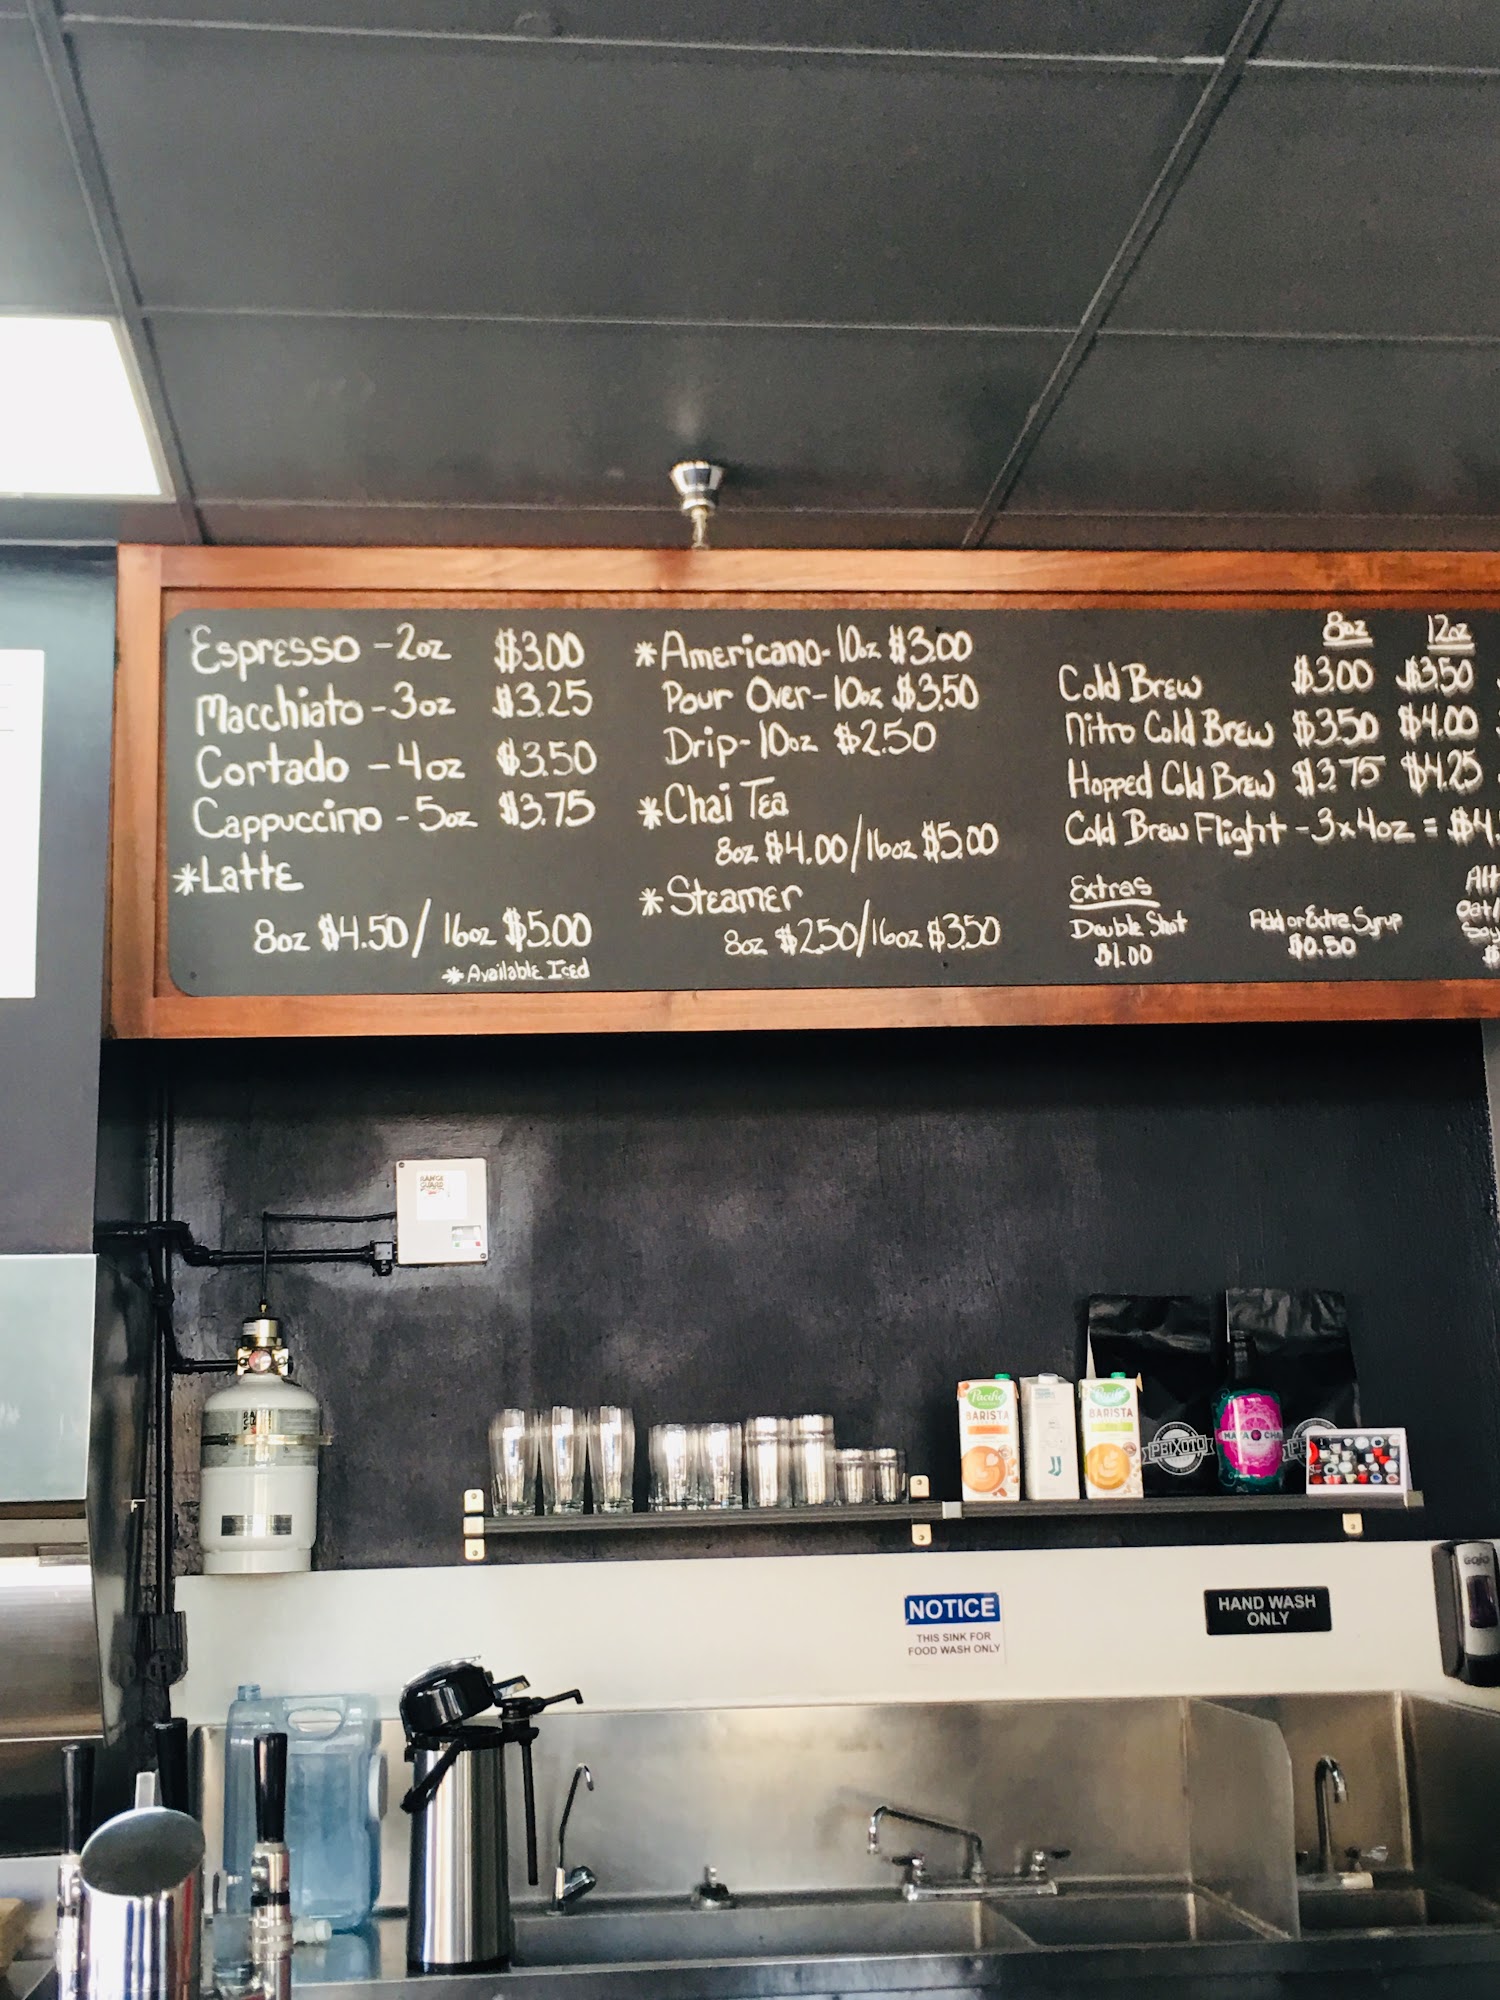 Espresso - 2oz $3.00
Macchiato - 3oz $3.25
Cortado - 4oz $3.50
Cappuccino - 5oz $3.75
*Latte
8oz $4.50/ 16oz $5.00
*Available Iced
*Americano- 10oz $3.00
Pour Over- 10oz $3.50
Drip- 10oz $2.50
*Chai Tea
8oz $4.00/16oz $5.00
*Steamer
8oz $2.50/16oz $3.50
8oz 12oz
Cold Brew $3.00 $3.50
Nitro Cold Brew $3.50 $4.00
Hopped Cold Brew $3.75 $4.25
Cold Brew Flight - 3x4oz = $4.
Extras
Double Shot
$1.00
Add or Extra Syrup
$0.50
Pacific
BARISTA
Pacific
BARISTA
PEIXOTO
NOTICE
THIS SINK FOR
FOOD WASH ONLY
HAND WASH
ONLY
GOJO